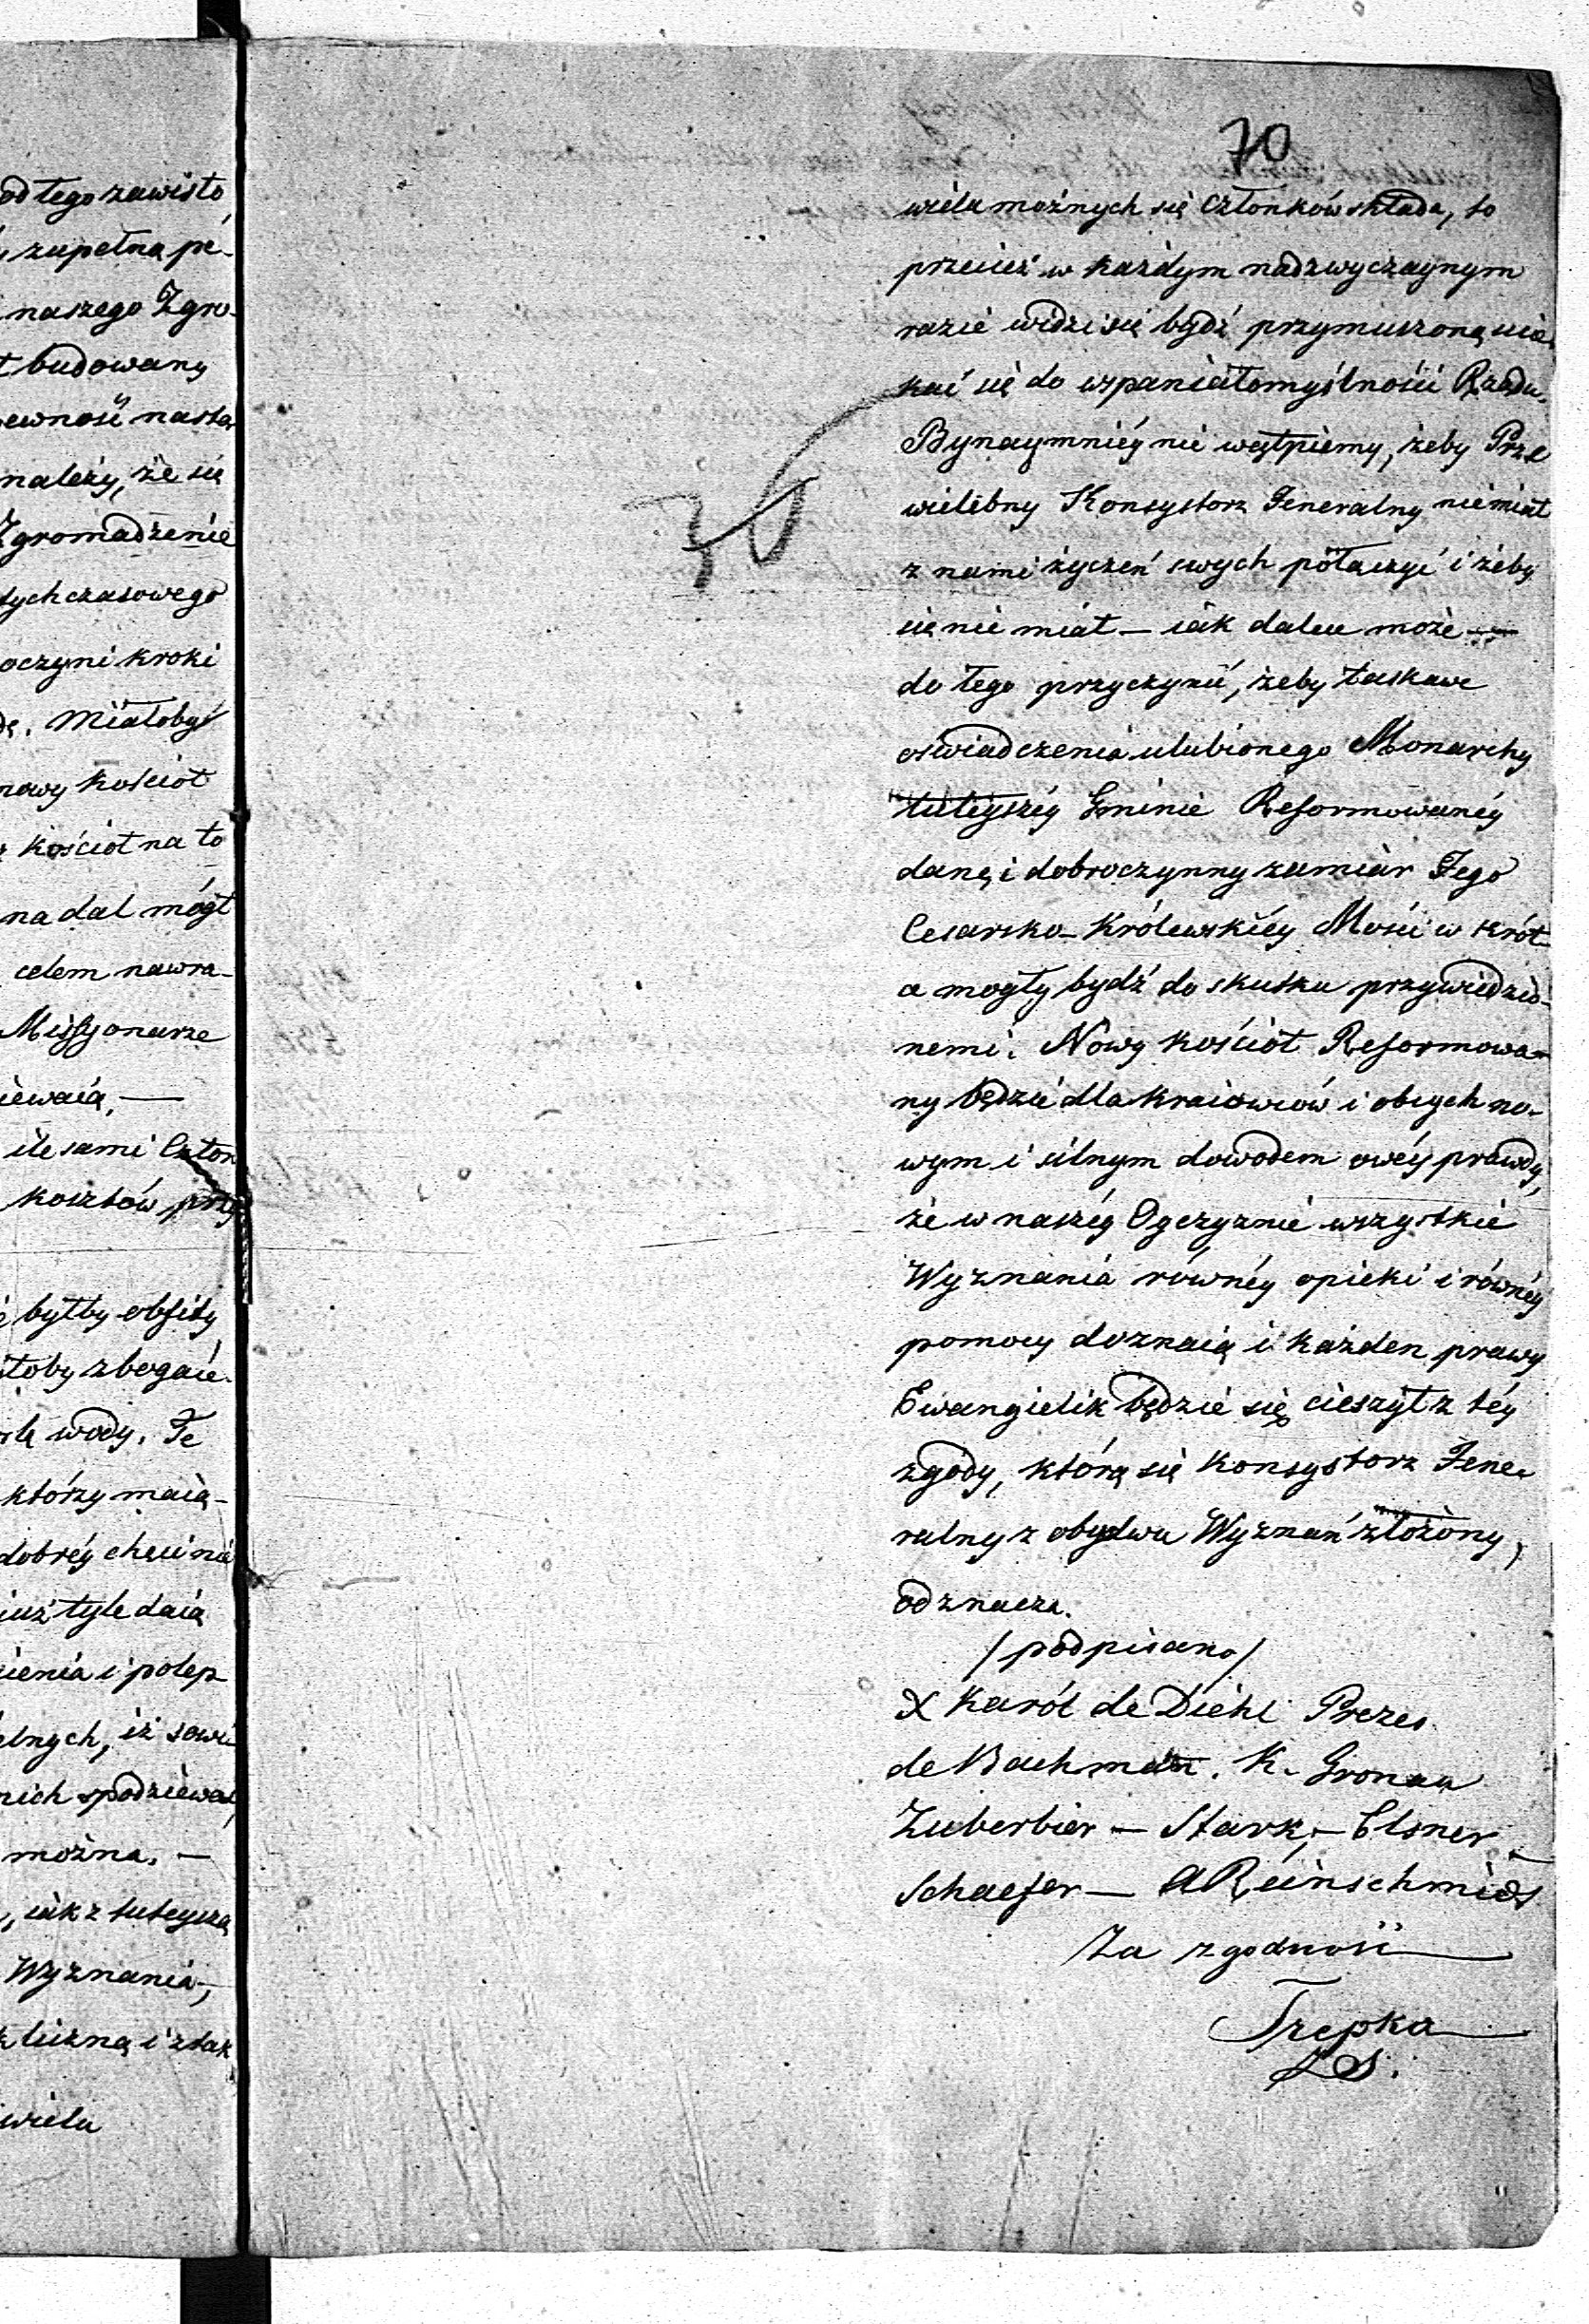 od tego zawisło
zupełną pe-
naszego Zgro-
budowany
pewność nastą
należy, że się
Zgromadzenie
tychczasowego
oczyni kroki
Miałoby
nowy kościoł
kościoł na to
na dal mógł
celem nawra-
Missyonarze
iewaią, —
ile sami Człon
kosztów przy
byłby obfity
toby zbogacie.
wody. Te
którzy maią-
dobréy chęci nie
iuż tyle daią
ienia i polep-
elnych, iż sowi
nich spodziewać
można. —
iak z tuteyszą
Wyznania,
liczną i z tak
wielu
70
wielu możnych się członków składa, to
przecież w każdym nadzwyczaynym
razie widzi się bydź przymuszoną ucie-
kać się do wspaniałomyślności Rządu.
Bynaymniéy nie wątpiemy, żeby Prze
wielebny Konsystorz Jeneralny nie miał
z nami życzeń swych połaczyć i żeby
się nie miał — iak dalece może —
do tego przyczynić, żeby łaskawe
oświadczenia ulubionego Monarchy
tuteyszéy Gminie Reformowanéy
dane, i dobroczynny zamiar Jego
Cesarsko-Królewskiéy Mości w krót-
ce mogły bydź do skutku przywiedzio-
nemi. Nowy kościoł Reformowa-
ny będzie dla kraiowców i obcych no-
wym i silnym dowodem owéy prawdy,
że w naszéy Oyczyznie wszystkie
Wyznania równéy opieki i równéy
pomocy doznaią i każden prawy
Ewangielik będzie się cieszył z téy
zgody, którą się Konsystorz Jene-
ralny z obydwu Wyznań złożony,
odznacza.
/podpisano/
X Karól de Diehl Prezes
de Bachman. K. Gronau
Zuberbier — Stark, — Elsner —
Schaefer — A Reinschmidt
Za zgodność
Trepka
ZS.